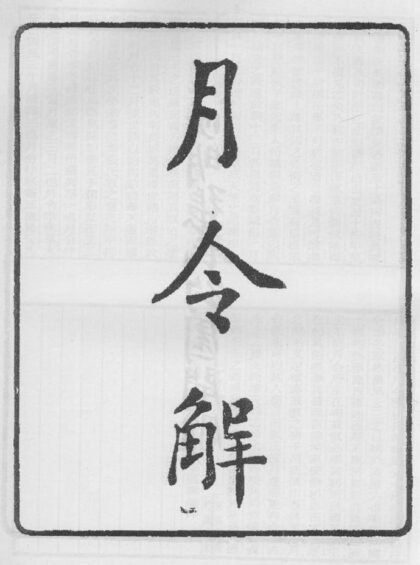 月令解